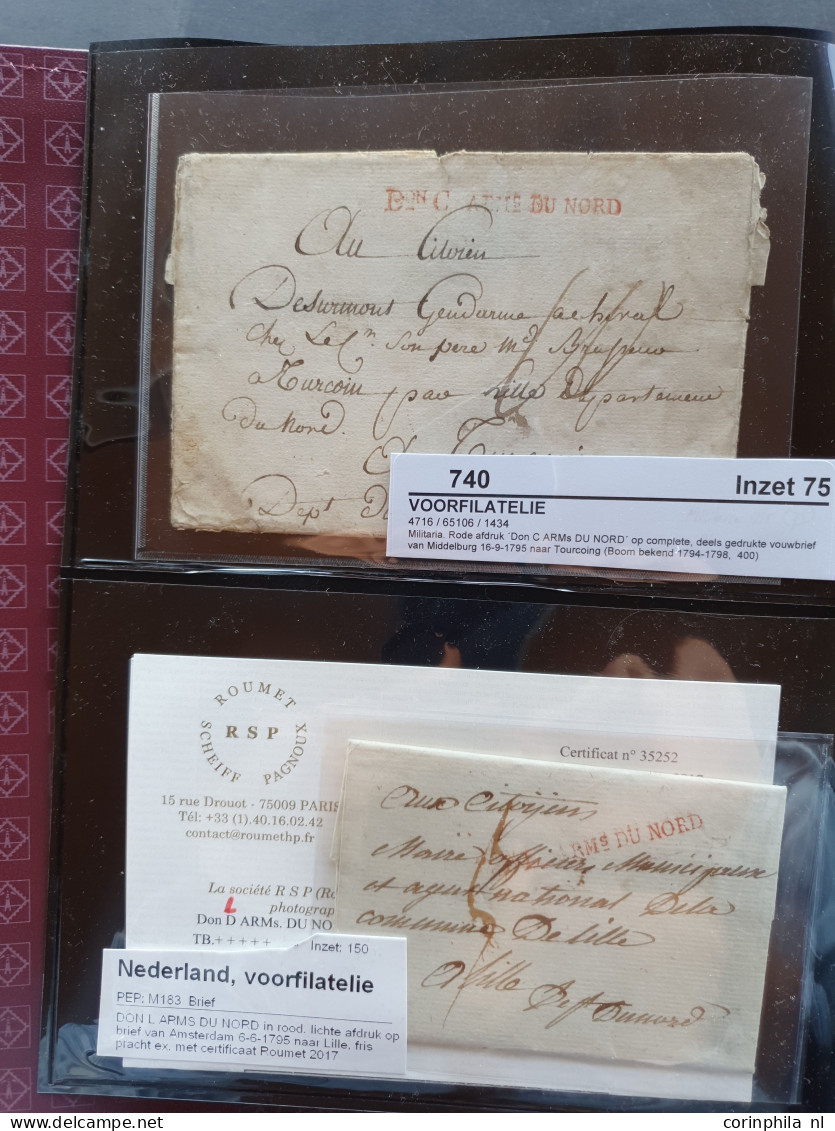 DON C ARMs DU NORD
Au Citoien
Desurmont Gendarme a cheval
chez Le Cn. son pere Md
a Turcoin par Lille Departement
du Nord.
Dept
740 Inzet 75
VOORFILATELIE
4716 / 65106 / 1434
Militaria. Rode afdruk 'Don C ARMs DU NORD' op complete, deels gedrukte vouwbrief
van Middelburg 16-9-1795 naar Tourcoing (Boom bekend 1794-1798, 400)
ROUMET
SCHEIFF PAGNOUX
R S P
15 rue Drouot - 75009 PARIS
Tél: +33 (1).40.16.02.42
contact@roumethp.fr
Certificat n° 35252
La société R S P (Ro
photograp
L
Don D ARMs. DU NO
TB.+++++
ARMs DU NORD
aux Citoijens
Maire officiers Municipaux
et agent national De la
commune De Lille
a Lille
Dept Dunord
Inzet: 150
Nederland, voorfilatelie
PEP: M183 Brief
DON L ARMS DU NORD in rood, lichte afdruk op
brief van Amsterdam 6-6-1795 naar Lille, fris
pracht ex. met certificaat Roumet 2017
corinphila nl